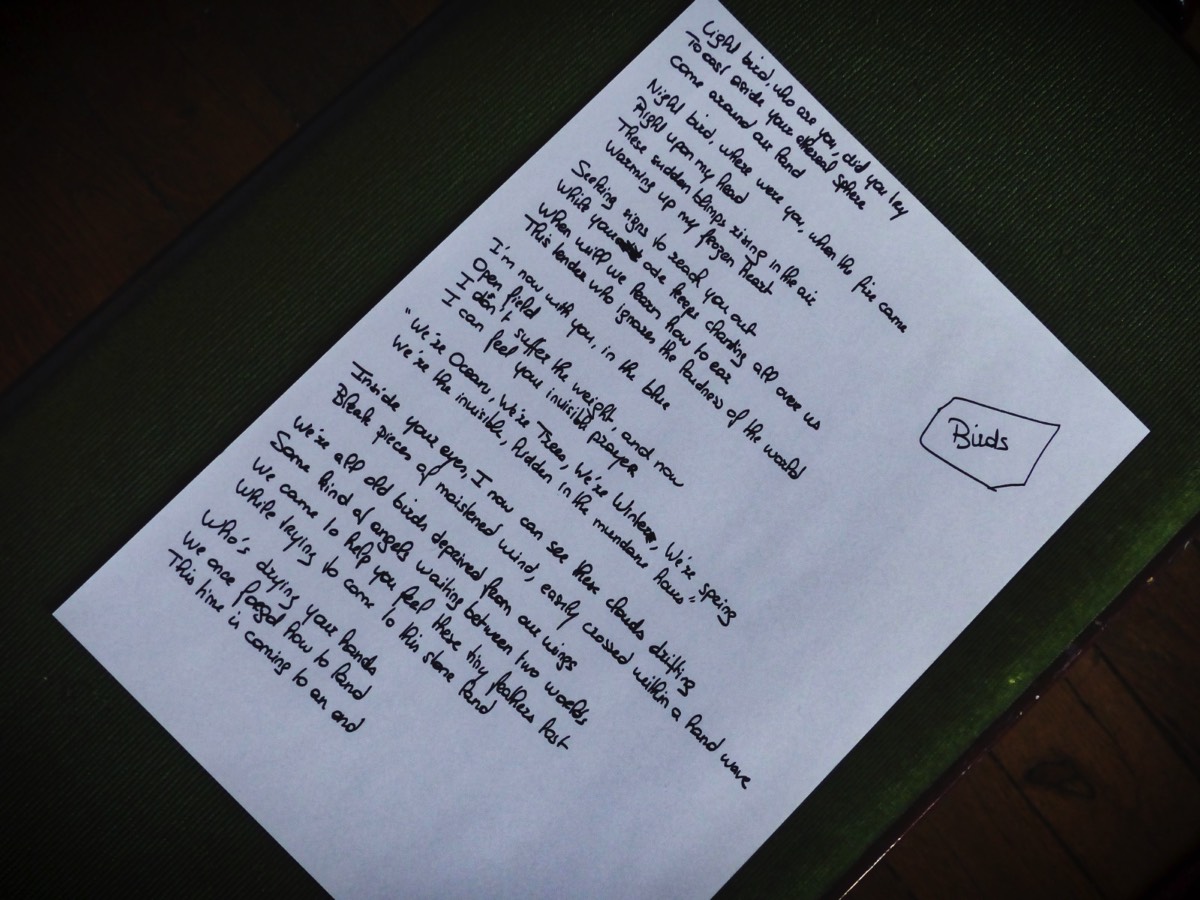 Birds
Light bird, who are you, did you try
To cast aside your ethereal sphere
Come around our land
Night bird, where were you, when the fire came
Right upon my head
These sudden blimps rising in the air
Warming up my frozen heart
Seeking signs to reach you out
While your ode keeps chanting all over us
When will we learn how to ear
This tender who ignores the loudness of the world
I'm now with you, in the blue
Open field
I don't suffer the weight, and now
I can feel your invisible prayer
"We're Ocean, We're Trees, We're Winter, We're spring
We're the invisible, hidden in the mundane hours"
Inside your eyes, I now can see these clouds drifting
Bleak pieces of moistened wind, easily crossed within a hand wave
We're all old birds deprived from our wings
Some kind of angels waiting between two worlds
We came to help you feel these tiny feathers lost
While trying to come to this stone land
Who's drying your hands
We once forgot how to land
This time is coming to an end